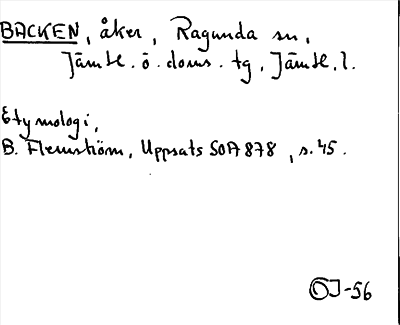 BACKEN, åker, Ragunda sn,
Jämtl. ö. doms. tg, Jämtl. l.
Etymologi,
B. Flemström, Uppsats SOA 878, s. 45.
OJ-56